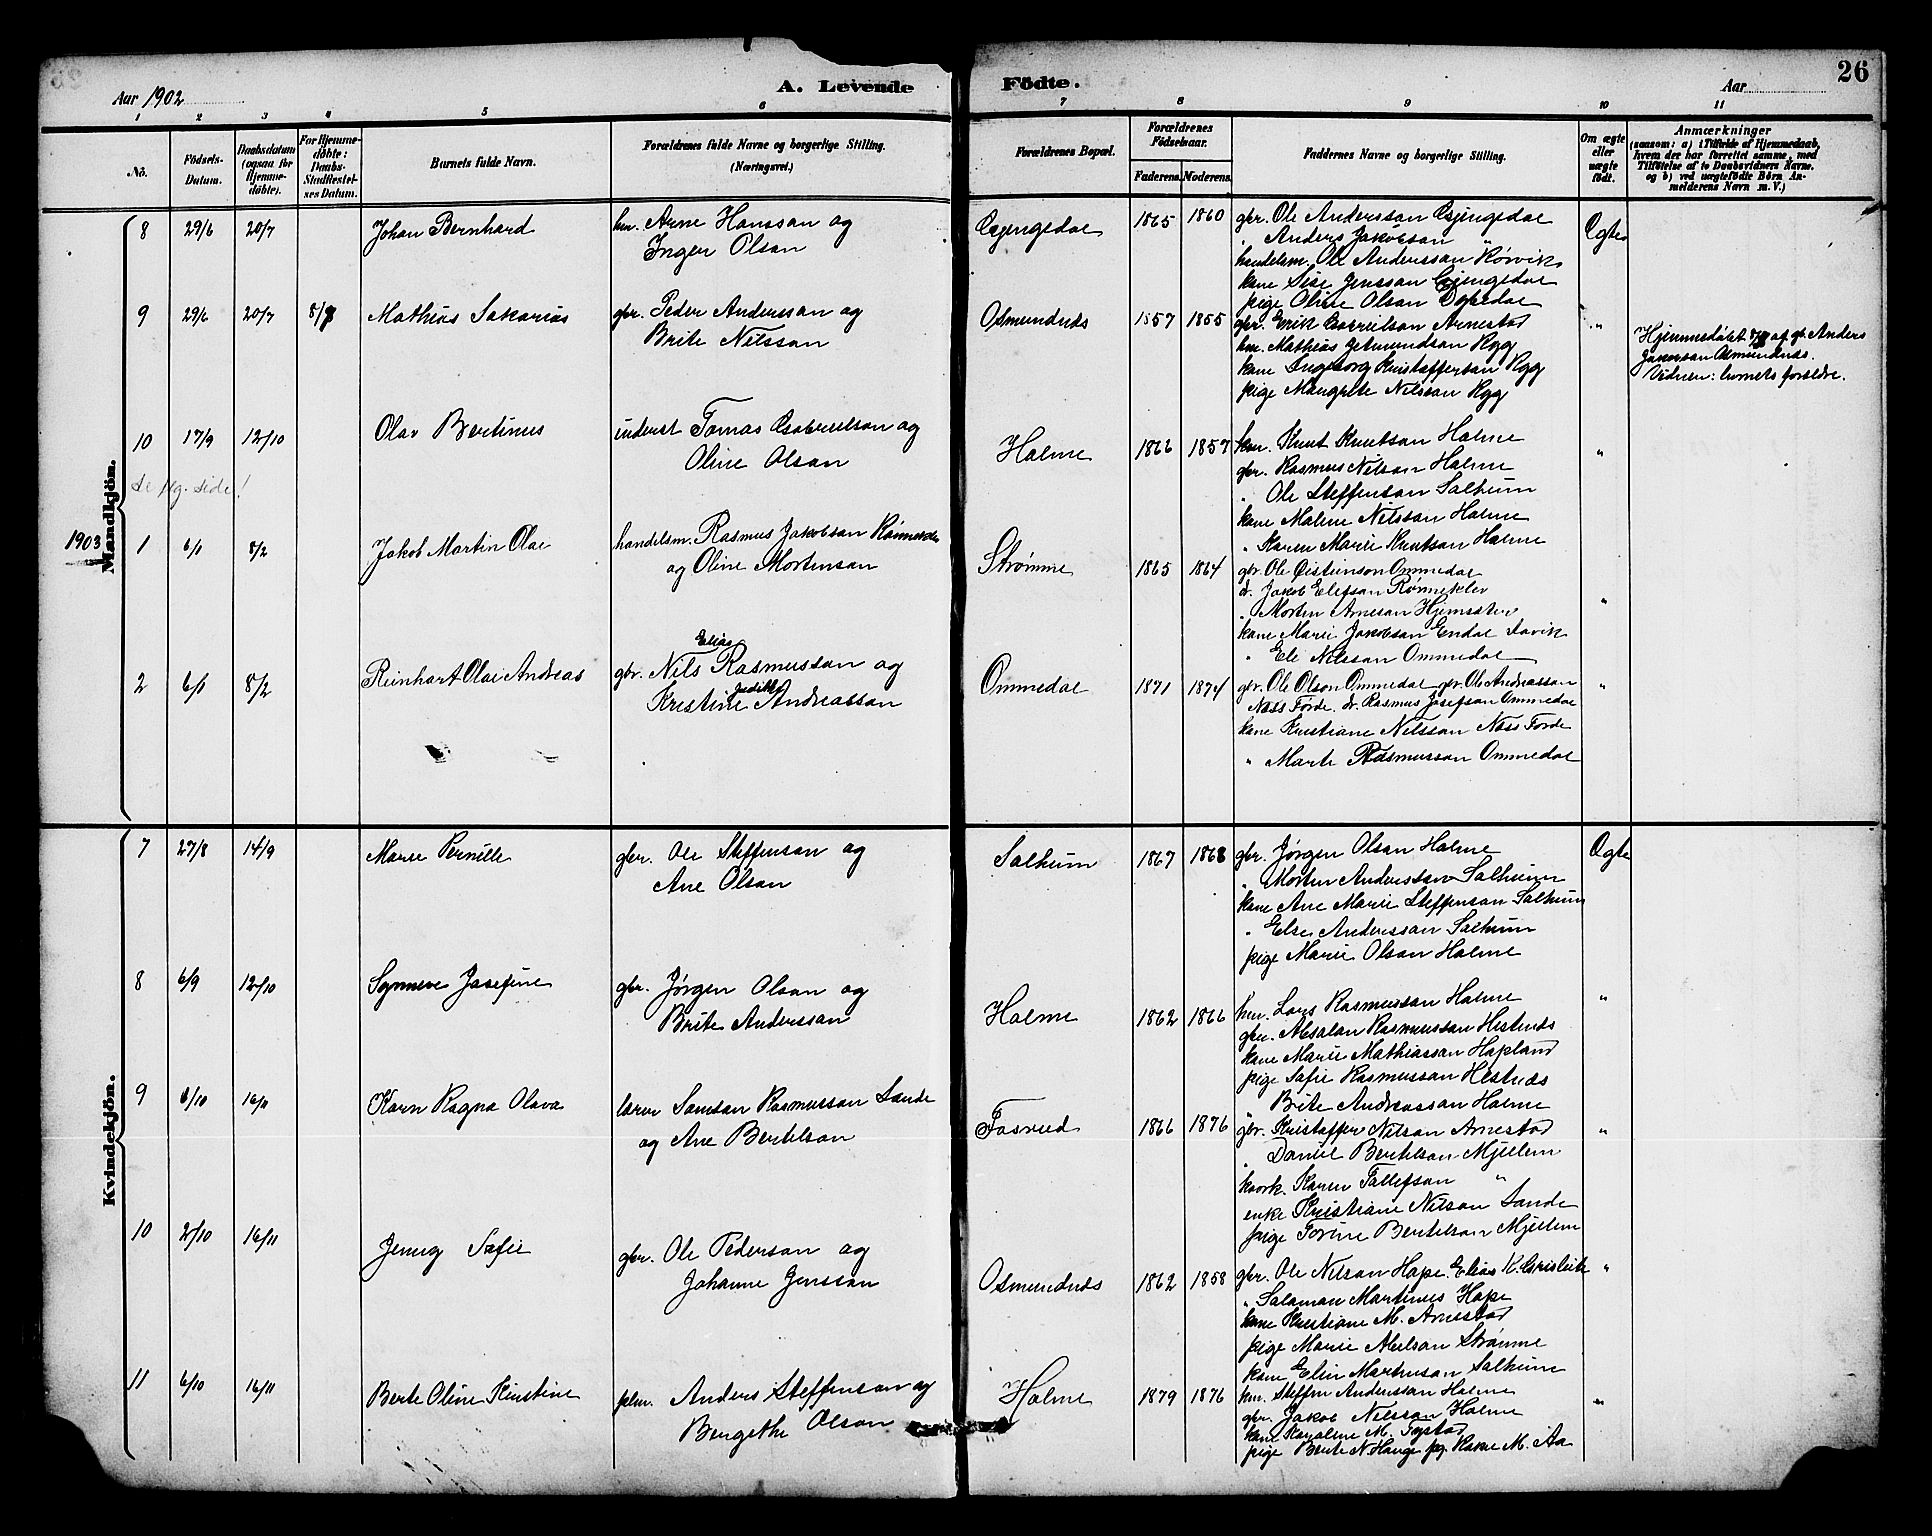 26
Aar 1902
A. Levende
Födte.
Aar
1 2 3 4 5 6 7 8 9 10 11
No.
Födsels-Datum.
Daabsdatum (ogsaa for Hjemme-döbte).
For Hjemme-döbte: Daabs-Stadfæstel-ses Datum.
Barnets fulde Navn.
Forældrenes fulde Navne og borgerlige Stilling. (Næringsvei.)
Forældrenes Bopæl.
Forældrenes Födselsaar.
Faderens. Moderens.
Faddernes Navne og borgerlige Stilling.
Om ægte eller uægte født.
Anmærkninger (saasom: a) i Tilfælde af Hjemmedaab, hvem der har forrettet samme, med Tilföielse af to Daabsvidners Navne, og b) ved uægtefödte Börn Anmelderens Navn m. V.)
Mandkjön.
8 29/6 20/7 Johan Bernhard hm. Arne Hanssan og
Inger Olsan
Gjengedal 1865 1860 gbr. Ole Anderssan Gjengedal Ægte
" Anders Jakobsan "
handelsm. Ole Anderssan Rørvik
kane Sise Jenssan Gjengedal
pige Oline Olsan Dopedal
9 29/6 20/7 8/8 Mathias Sakarias gbr. Peder Anderssan og
Brite Nilssan
Osmundnds 1857 1855 gbr. Erik Gabrielsan Arnestad "
hm. Mathias Jetmundsan Ryg
kane Ingeborg Kristaffersan Ryg
pige Mangrete Nilssan Ryg
Hjemmedøbt af gb. Anders
Jakobsan Osmundnds.
Vidner: barnets forældre.
10 17/9 12/10 Olav Bertinus inderst Tomas Gabrielsan og
Oline Olsan
Holme 1866 1857 hm. Knut Knutsan Holme "
gbr. Rasmus Nilsan Holme
" Ole Steffensan Salhum
kane Malene Nilssan Holme
" Karen Marie Knutsan Holme
se flg. side!
1903
1 6/1 8/2 Jakob Martin Olai handelsm. Rasmus Jakobsan Rønneklev
og Oline Mortensan
Strømme 1865 1864 gbr. Ole Øistensan Ommedal "
dr. Jakob Elefsan Rønneklev
" Morten Arnesan Hjemsæter
kane Marie Jakobsan Endal Davik
" Eli Nilssan Ommedal
2 6/1 8/2 Reinhart Olai Andreas gbr. Nils Elias Rasmussan og
Kristine Judithe Andreassan
Ommedal 1871 1874 gbr. Ole Olsan Ommedal gbr. Ole Andreassan
Næss Førde. dr. Rasmus Josefsan Ommedal "
kane Kristiane Nilssan Næss Førde
" Marte Rasmussan Ommedal
Kvindekjön.
7 27/8 14/9 Marie Pernille gbr. Ole Steffensan og
Ane Olsan
Salhum 1867 1868 gbr. Jørgen Olsan Holme Ægte
" Morten Anderssan Salhum
kane Ane Marie Steffensan Salhum
" Else Anderssan Salhum
pige Marie Olsan Holme
8 6/9 12/10 Synneve Josefine gbr. Jørgen Olsan og
Brite Anderssan
Holme 1862 1866 hm. Lars Rasmussan Holme "
gbr. Absalan Rasmussan Hestnds
kane Marie Mathiassan Hapland
pige Safie Rasmussan Hestnds
" Brite Andreassan Holme
9 6/10 16/11 Karn Ragna Olava lærer Samsan Rasmussan Sande
og Ane Bertelsan
Fosrud 1866 1876 gbr. Kristaffer Nilsan Arnestad "
" Daniel Bertelsan Mjellem
kaark. Karen Tallefsan "
enke Kristiane Nilsan Sande
pige Torine Bertelsan Mjellem
10 2/10 16/11 Jenny Safie gbr. Ole Pedersan og
Johanne Jenssan
Osmundnds 1862 1858 gbr. Ole Nilsan Hope. Elias K. "
" Salaman Martinus Hope
kane Kristiane M. Arnestad
pige Marie Abelsan Strømme
kane Elin Martinsan Salhum
11 6/10 16/11 Berte Oline Kristine plm. Anders Steffensan og
Bergethe Olsan
Holme 1879 1876 hm. Steffen Anderssan Holme "
gbr. Jakob Nilssan Holme
kane Karoline M. Tystad
pige Berte N. Hauge pg. Karen M. Aa